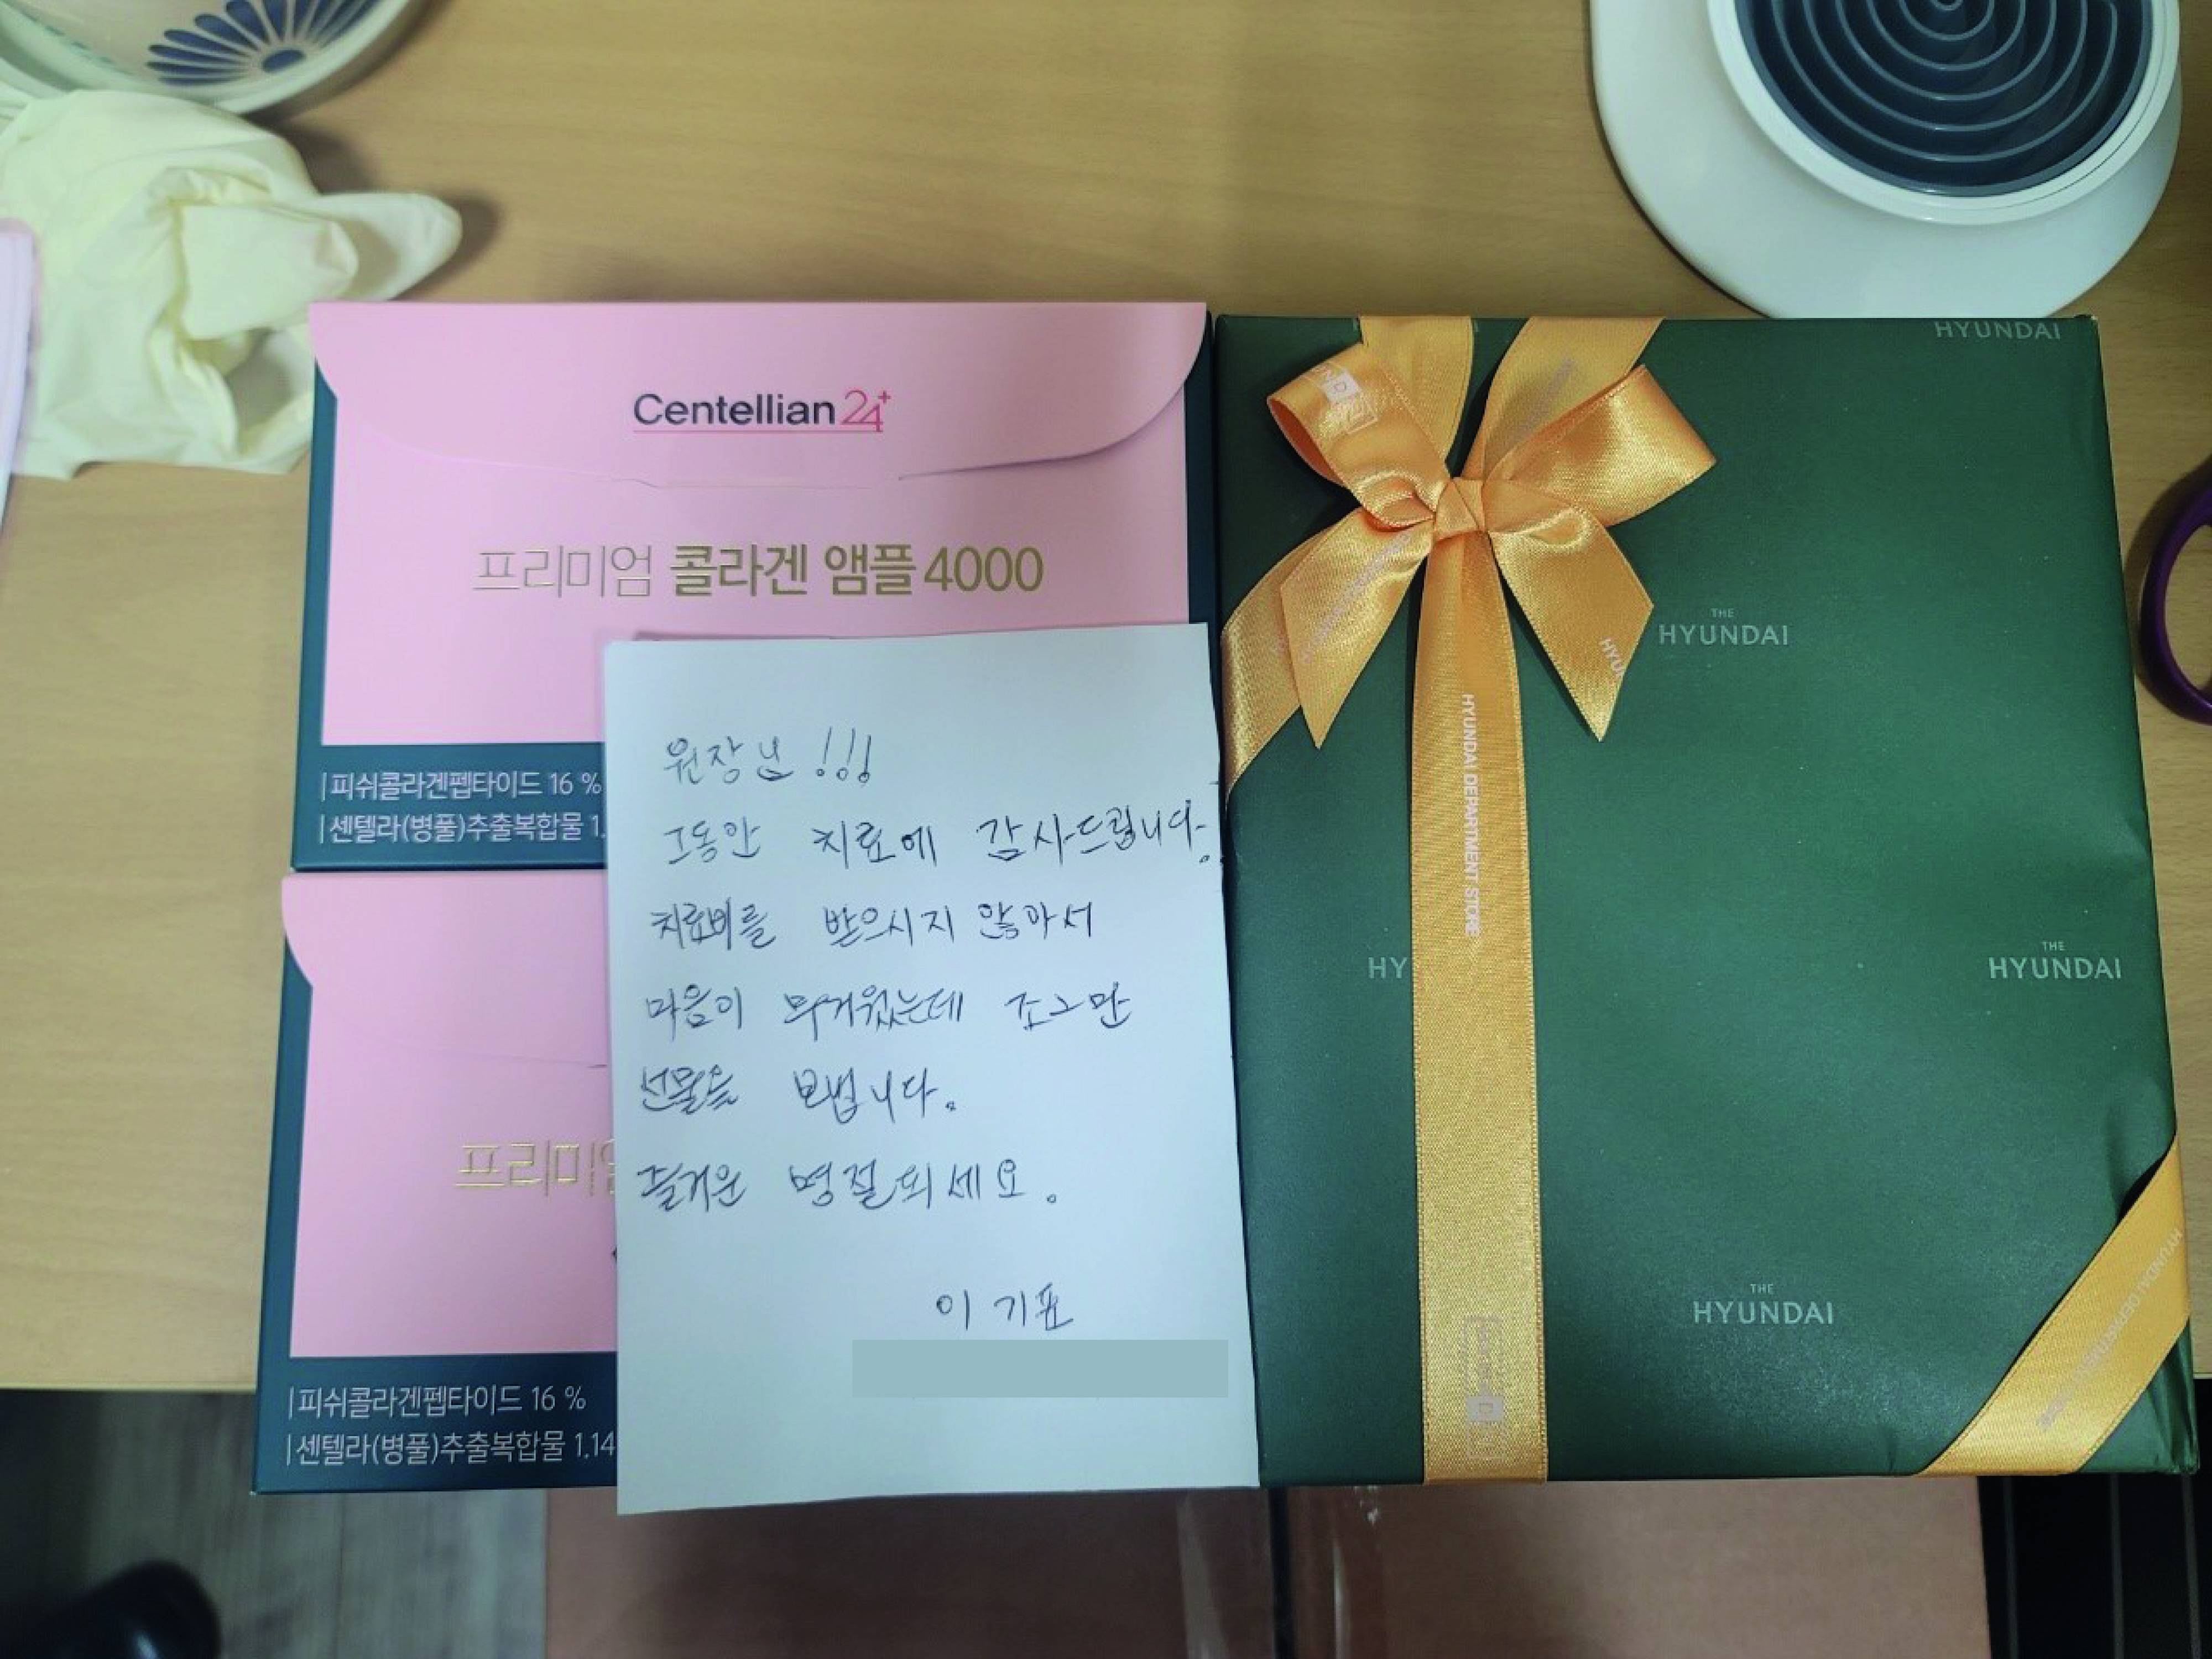 Centellian24+
프리미엄 콜라겐 앰플 4000
|피쉬콜라겐펩타이드 16 %
|센텔라(병풀)추출복합물 1.
프리미엄
|피쉬콜라겐펩타이드 16 %
|센텔라(병풀)추출복합물 1.14
원장님 !!!
그동안 치료에 감사드립니다.
치료비를 받으시지 않아서
마음이 무거웠는데 조그만
선물을 보냅니다.
즐거운 명절되세요.
이기표
HYUNDAI
THE
HYUNDAI
HY
THE
HYUNDAI
THE
HYUNDAI
HYUNDAI DEPARTMENT STORE
HYU